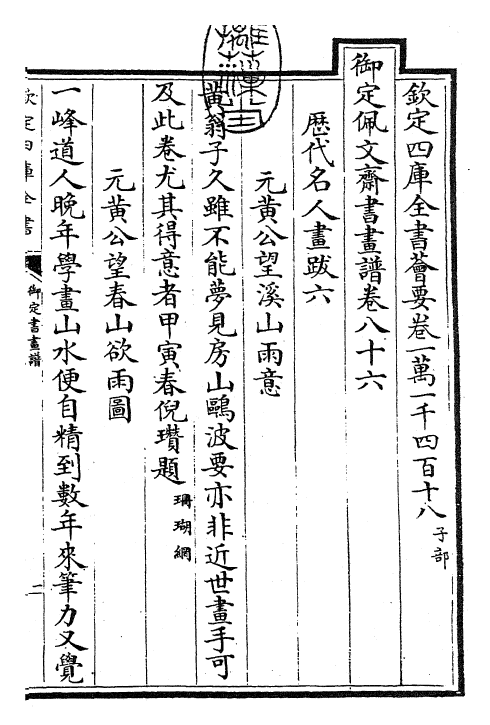 欽定四庫全書薈要卷一萬一千四百十八子部
御定佩文齋書畫譜卷八十六
歴代名人畫跋六
元黄公望溪山雨意
黄翁子久雖不能夢見房山鷗波要亦非近世畫手可
及此卷尤其得意者甲寅春倪瓚題珊瑚網
元黄公望春山欲雨圖
一峰道人晚年學畫山水便自精到數年來筆力又覺
欽定四庫全書
御定書畫譜